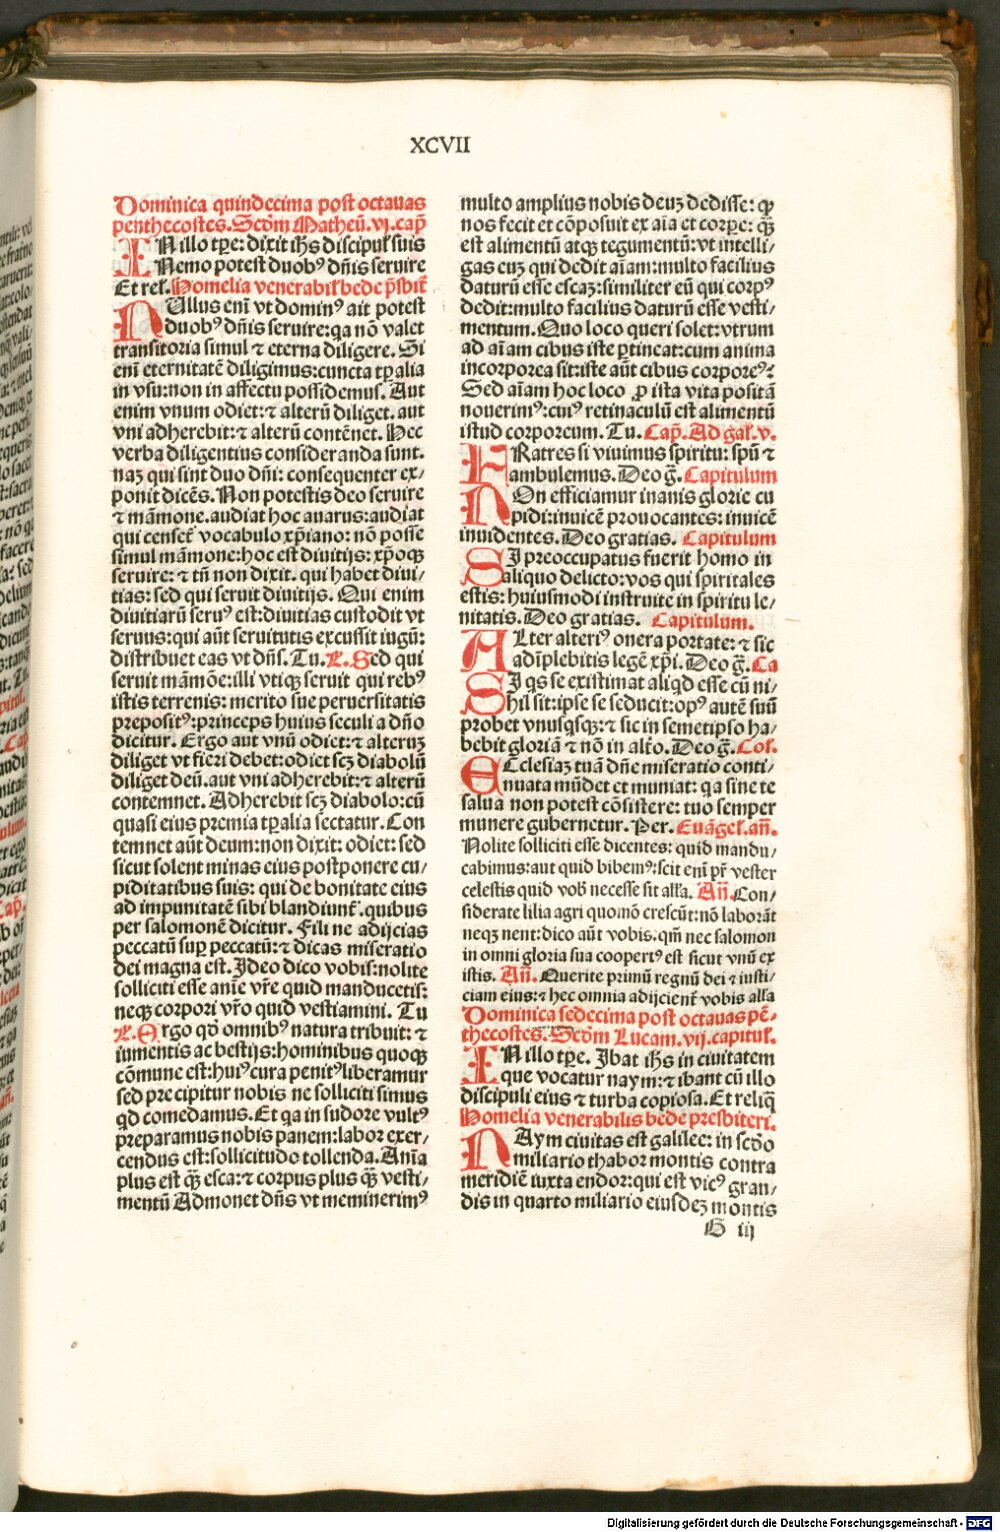 XCVII
Dominica quindecima post octauas
penthecostes. Scd̄m Matheū. vj. cap̄
IN illo tp̄e: dixit ih̄s discipul̛ suis
Nemo potest duobꝰ dn̄is seruire
Et rel̛. Homelia venerabil̛ bede p̄sbit̛
NUllus enī vt dominꝰ ait potest
duobꝰ dn̄is seruire: qa nō valet
transitoria simul ⁊ eterna diligere. Si
enī eternitatē diligimus: cuncta tp̄alia
in vsu: non in affectu possidemus. Aut
enim vnum odiet: ⁊ alterū diliget. aut
vni adherebit: ⁊ alterū contēnet. Hec
verba diligentius consideranda sunt.
naꝫ qui sint duo dn̄i: consequenter ex/
ponit dicēs. Non potestis deo seruire
⁊ māmone. audiat hoc auarus: audiat
qui censet̛ vocabulo xp̄iano: nō posse
simul māmone: hoc est diuitijs: xp̄oqꝫ
seruire: ⁊ tn̄ non dixit. qui habet diui/
tias: sed qui seruit diuitijs. Qui enim
diuitiarū seruꝰ est: diuitias custodit vt
seruus: qui aūt seruitutis excussit iugū:
distribuet eas vt dn̄s. Tu. R. Sed qui
seruit māmōe: illi vtiqꝫ seruit qui rebꝰ
istis terrenis: merito sue peruersitatis
prepositꝰ: princeps huius seculi a dn̄o
dicitur. Ergo aut vnū odiet: ⁊ alteruꝫ
diliget vt fieri debet: odiet scꝫ diabolū
diliget deū. aut vni adherebit: ⁊ alterū
contemnet. Adherebit scꝫ diabolo: cū
quasi eius premia tp̄alia sectatur. Con
temnet aūt deum: non dixit: odiet: sed
sicut solent minas eius postponere cu/
piditatibus suis: qui de bonitate eius
ad impunitatē sibi blandiunt̛. quibus
per salomonē dicitur. Fili ne adijcias
peccatū sup̱ peccatū: ⁊ dicas miseratio
dei magna est. Ideo dico vobis: nolite
solliciti esse anie vr̄e quid manducetis:
neqꝫ corpori vr̄o quid vestiamini. Tu
R. Ergo qd̄ omnibꝰ natura tribuit: ⁊
iumentis ac bestijs: hominibus quoqꝫ
cōmune est: huiꝰ cura penitꝰ liberamur
sed precipitur nobis ne solliciti simus
qd comedamus. Et qa in sudore vultꝰ
preparamus nobis panem: labor exer/
cendus est: sollicitudo tollenda. Anīa
plus est q̄ꝫ esca: ⁊ corpus plus q̄ꝫ vesti/
mentū Admonet dn̄s vt meminerimꝰ
multo amplius nobis deuꝫ dedisse: qꝙ
nos fecit et cōposuit ex aīa et corpe: q̄ꝫ
est alimentū atqꝫ tegumentū: vt intelli/
gas euꝫ qui dedit aīam: multo facilius
daturū esse escaꝫ: similiter eū qui corpꝰ
dedit: multo facilius daturū esse vesti/
mentum. Quo loco queri solet: vtrum
ad aīam cibus iste p̱tineat: cum anima
incorporea sit: iste aūt cibus corporeꝰ:
Sed aīam hoc loco ꝓ ista vita positā
nouerimꝰ: cuiꝰ retinaculū est alimentū
istud corporeum. Tu. Cap̄. Ad gal̛. v.
FRatres si viuimus spiritu: spū ⁊
ambulemus. Deo g̅. Capitulum
NOn efficiamur inanis glorie cu
pidi: inuicē prouocantes: inuicē
inuidentes. Deo gratias. Capitulum
SI preoccupatus fuerit homo in
aliquo delicto: vos qui spiritales
estis: huiusmodi instruite in spiritu le/
nitatis. Deo gratias. Capitulum.
ALter alteriꝰ onera portate: ⁊ sic
adīplebitis legē xp̄i. Deo g̅. Ca
SI qs se existimat aliqd esse cū ni/
hil sit: ipse se seducit: opꝰ autē suū
probet vnusqsqꝫ: ⁊ sic in semetipso ha/
bebit gloriā ⁊ nō in alt̛o. Deo g̅. Col̛.
ECclesiaꝫ tuā dn̄e miseratio conti/
nuata mūdet et muniat: qa sine te
salua non potest cōsistere: tuo semper
munere gubernetur. Per. Euāgel̛. an̄.
Nolite solliciti esse dicentes: quid mandu/
cabimus: aut quid bibemꝰ: scit enī pr̄ vester
celestis quid vob̛ necesse sit all̛a. An̄. Con/
siderate lilia agri quomō crescūt: nō laborāt
neqꝫ nent: dico aūt vobis. qm̄ nec salomon
in omni gloria sua coopertꝰ est sicut vnū ex
istis. An̄. Querite primū regnū dei ⁊ iusti/
ciam eius: ⁊ hec omnia adijcient̛ vobis all̛a
Dominica sedecima post octauas pē-
thecostes. Scd̄m Lucam. vij. capitul̛.
IN illo tp̄e. Ibat ih̄s in ciuitatem
que vocatur naym: ⁊ ibant cū illo
discipuli eius ⁊ turba copiosa. Et reliq̄
Homelia venerabilis bede presbiteri.
NAym ciuitas est galilee: in scd̄o
miliario thabor montis contra
meridiē iuxta endor: qui est vicꝰ gran/
dis in quarto miliario eiusdeꝫ montis
G iij
Digitalisierung gefördert durch die Deutsche Forschungsgemeinschaft - DFG